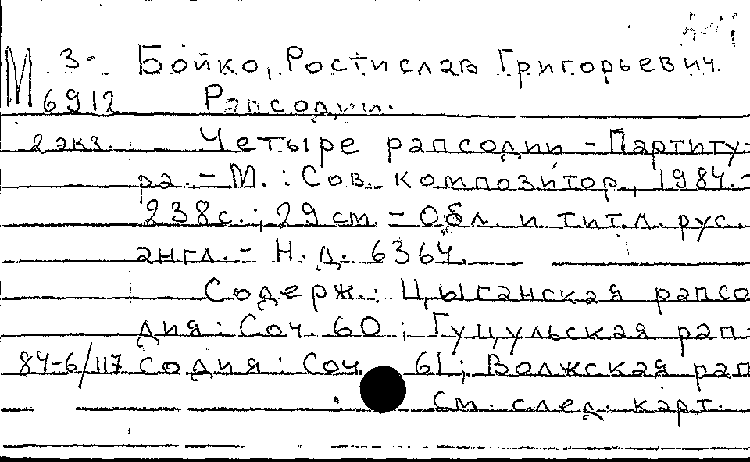 М 3- Бойко, Ростислав Григорьевич.
6912 Рапсодии.
2 экз. Четыре рапсодии - Партиту-
ра. - М. : Сов. композитор, 1984. -
238с. ; 29 см - Обл. и тит. л. рус.
англ. - Н. д. 6364.
Содерж. : Цыганская рапсо
дия : Соч. 60 ; Гуцульская рап-
84-6/117 содия : Соч. 61 ; Волжская рап
См. след. карт.